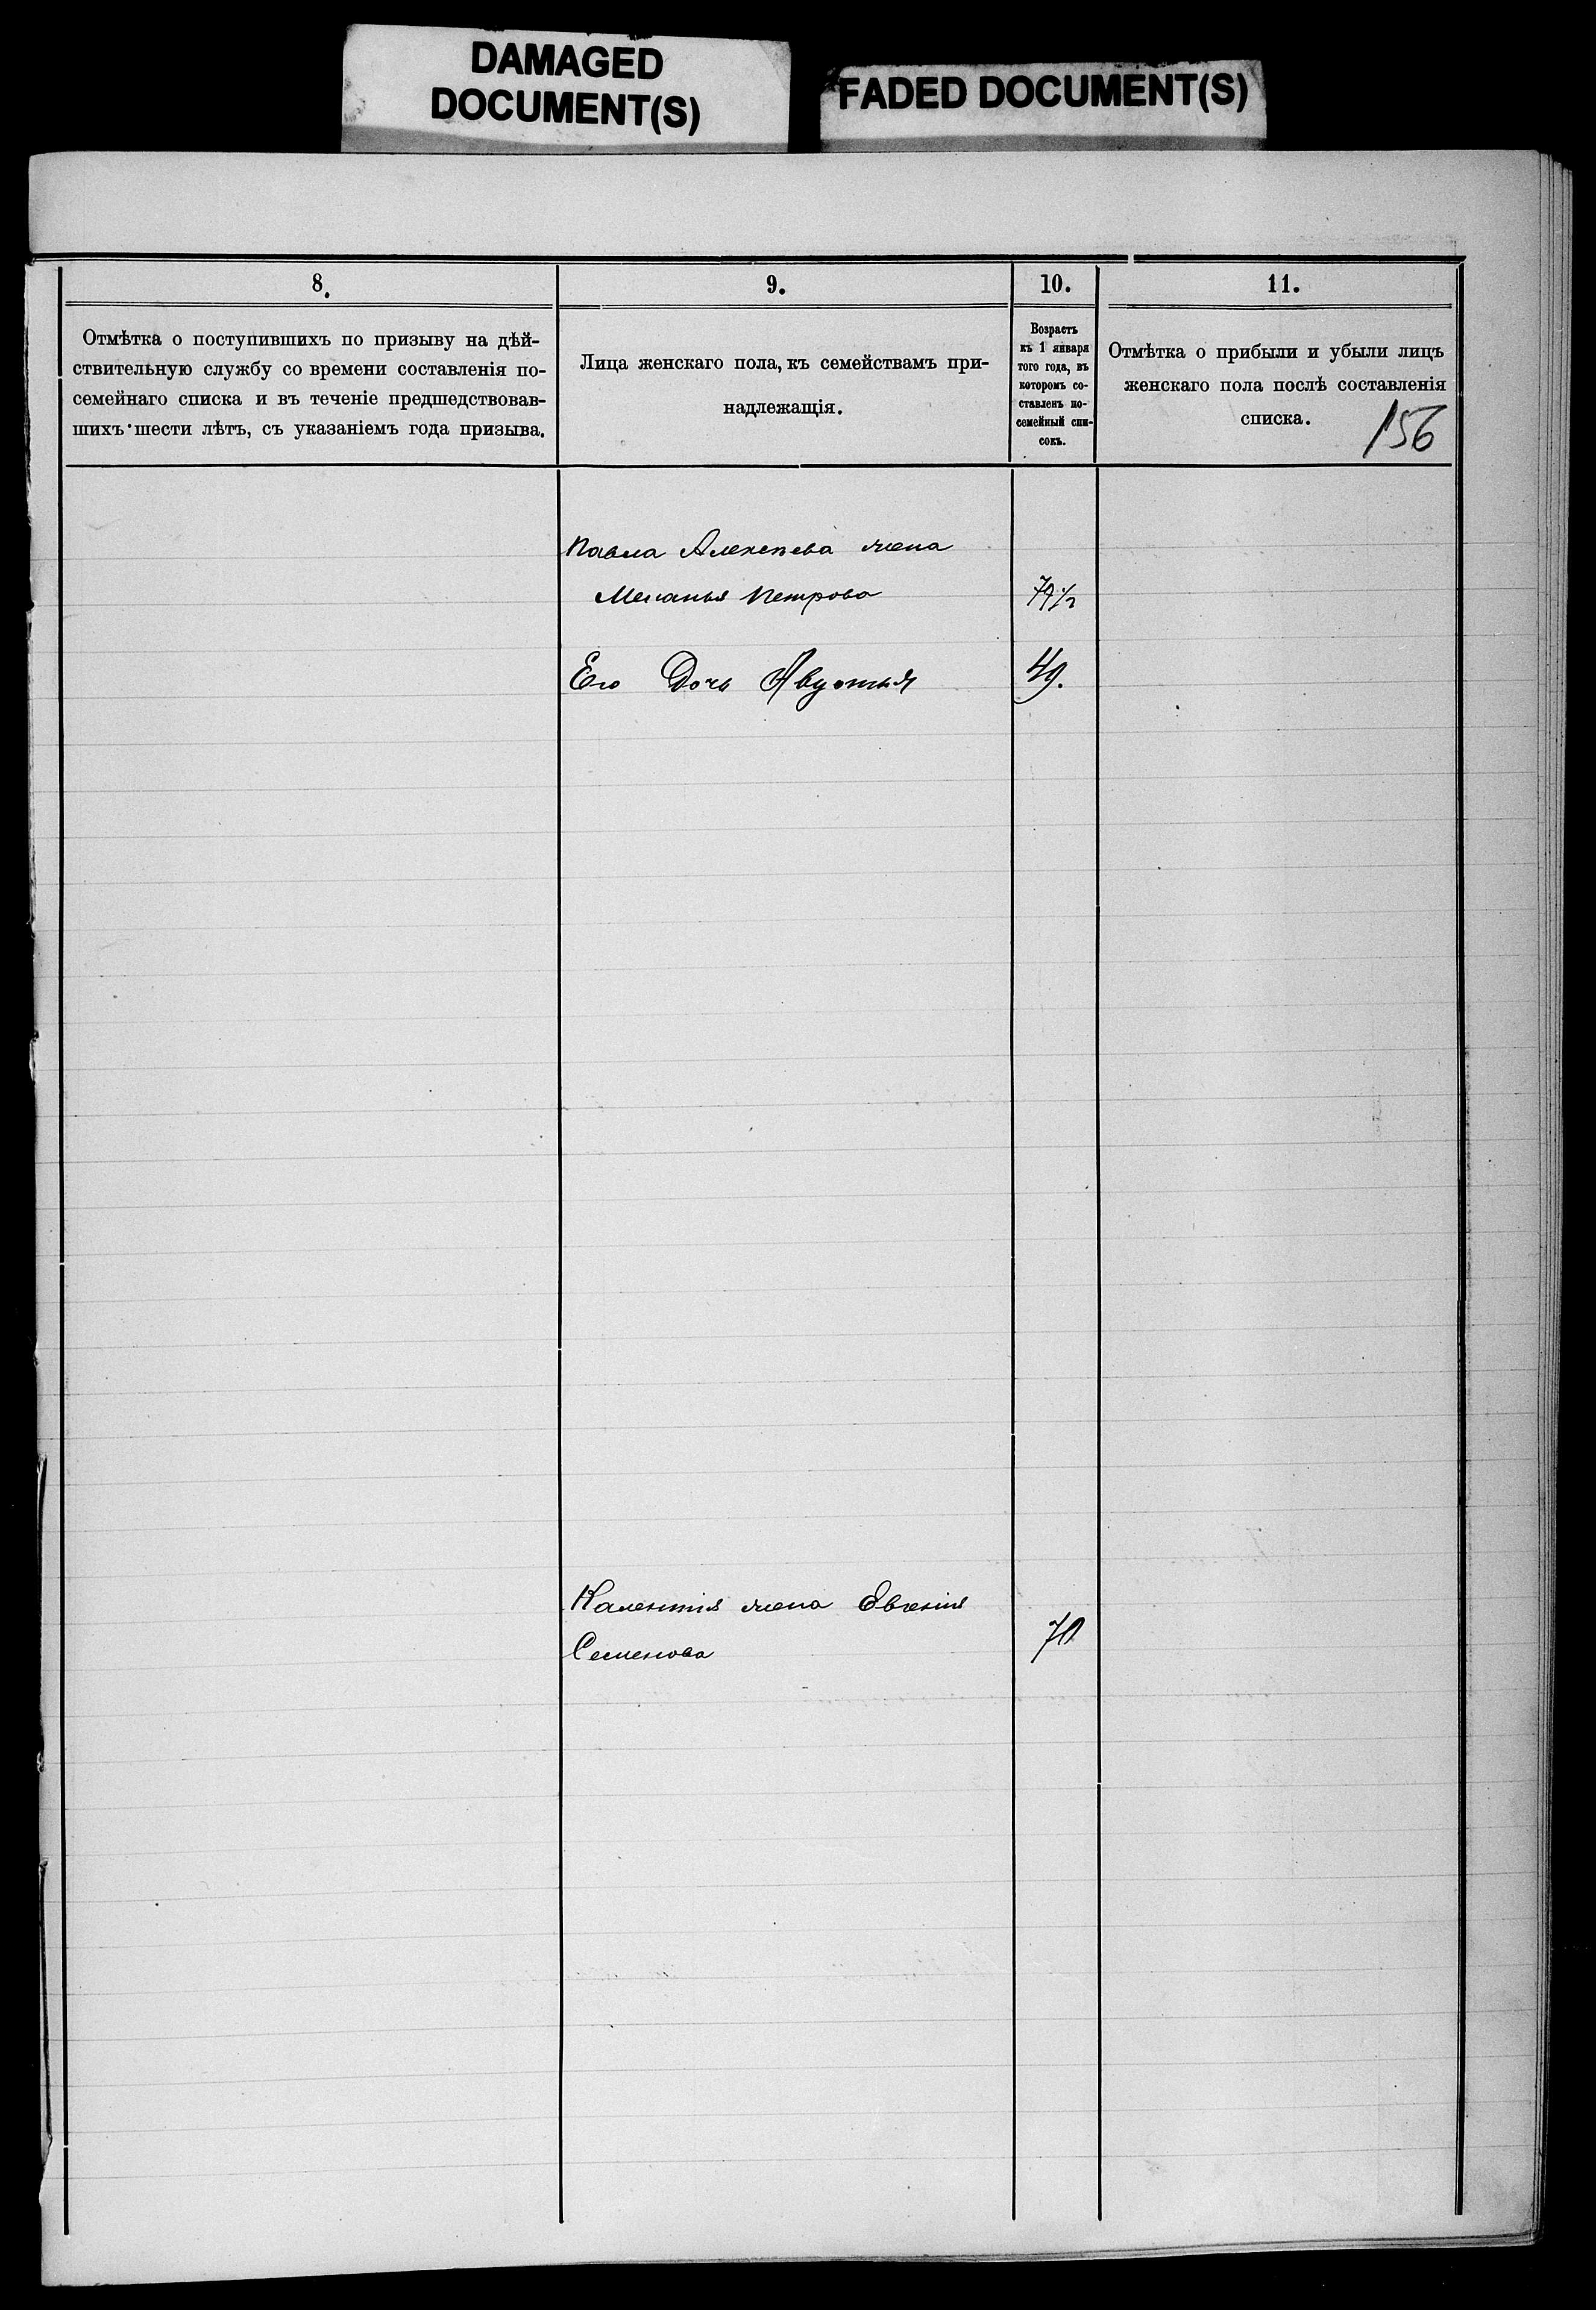 DAMAGED
DOCUMENT(S)
FADED DOCUMENT(S)
8.
9.
10.
11.
Отмѣтка о поступившихъ по призыву на дѣй-
ствительную службу со времени составленія по-
семейнаго списка и въ теченіе предшедствовав-
шихъ шести лѣтъ, съ указаніемъ года призыва.
Лица женскаго пола, къ семействамъ при-
надлежащія.
Возрастъ
къ 1 января
того года, въ
которомъ со-
ставленъ по-
семейный спи-
сокъ.
Отмѣтка о прибыли и убыли лицъ
женскаго пола послѣ составленія
списка.
156
Павла Алексѣева жена
Меланья Петрова 79½
Его Дочь Авдотья 49.
Калентія жена Евгенія
Семенова 70